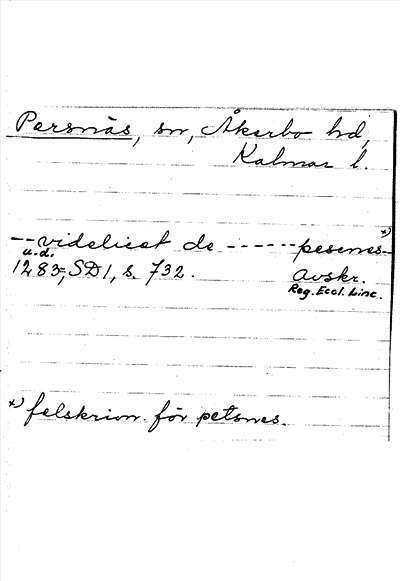 Persnäs, sn, Åkerbo hd,
Kalmar l.
-- videlicet de ------ pesenes-- *)
u.d.
1283, SD 1, s. 732. avskr.
Reg. Eccl. Linc.
*) felskrivn. för petsnes.